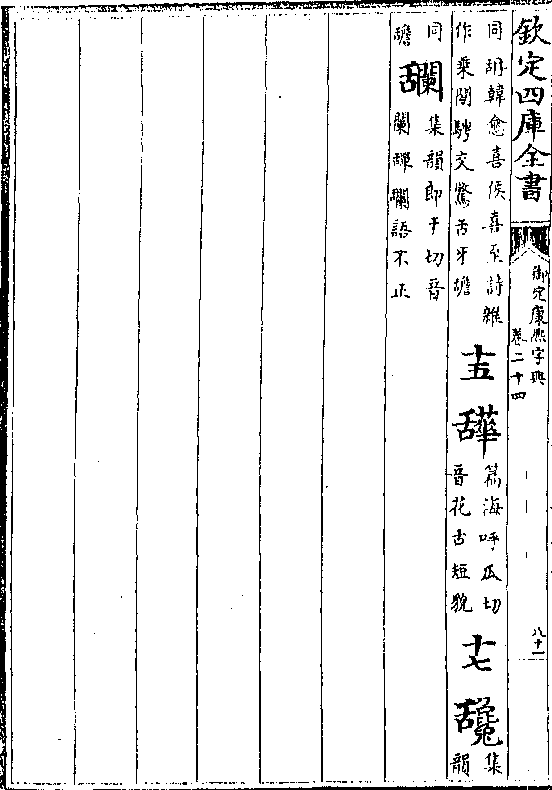 欽定四庫全書
御定康熙字典
卷二十四
八十一
同 韓愈喜侯喜至詩雜
作乘閒騁交驚舌牙
十五
篇海呼瓜切
音花舌短貌
十七
集
韻
同
集韻郎干切音
闌 語不正